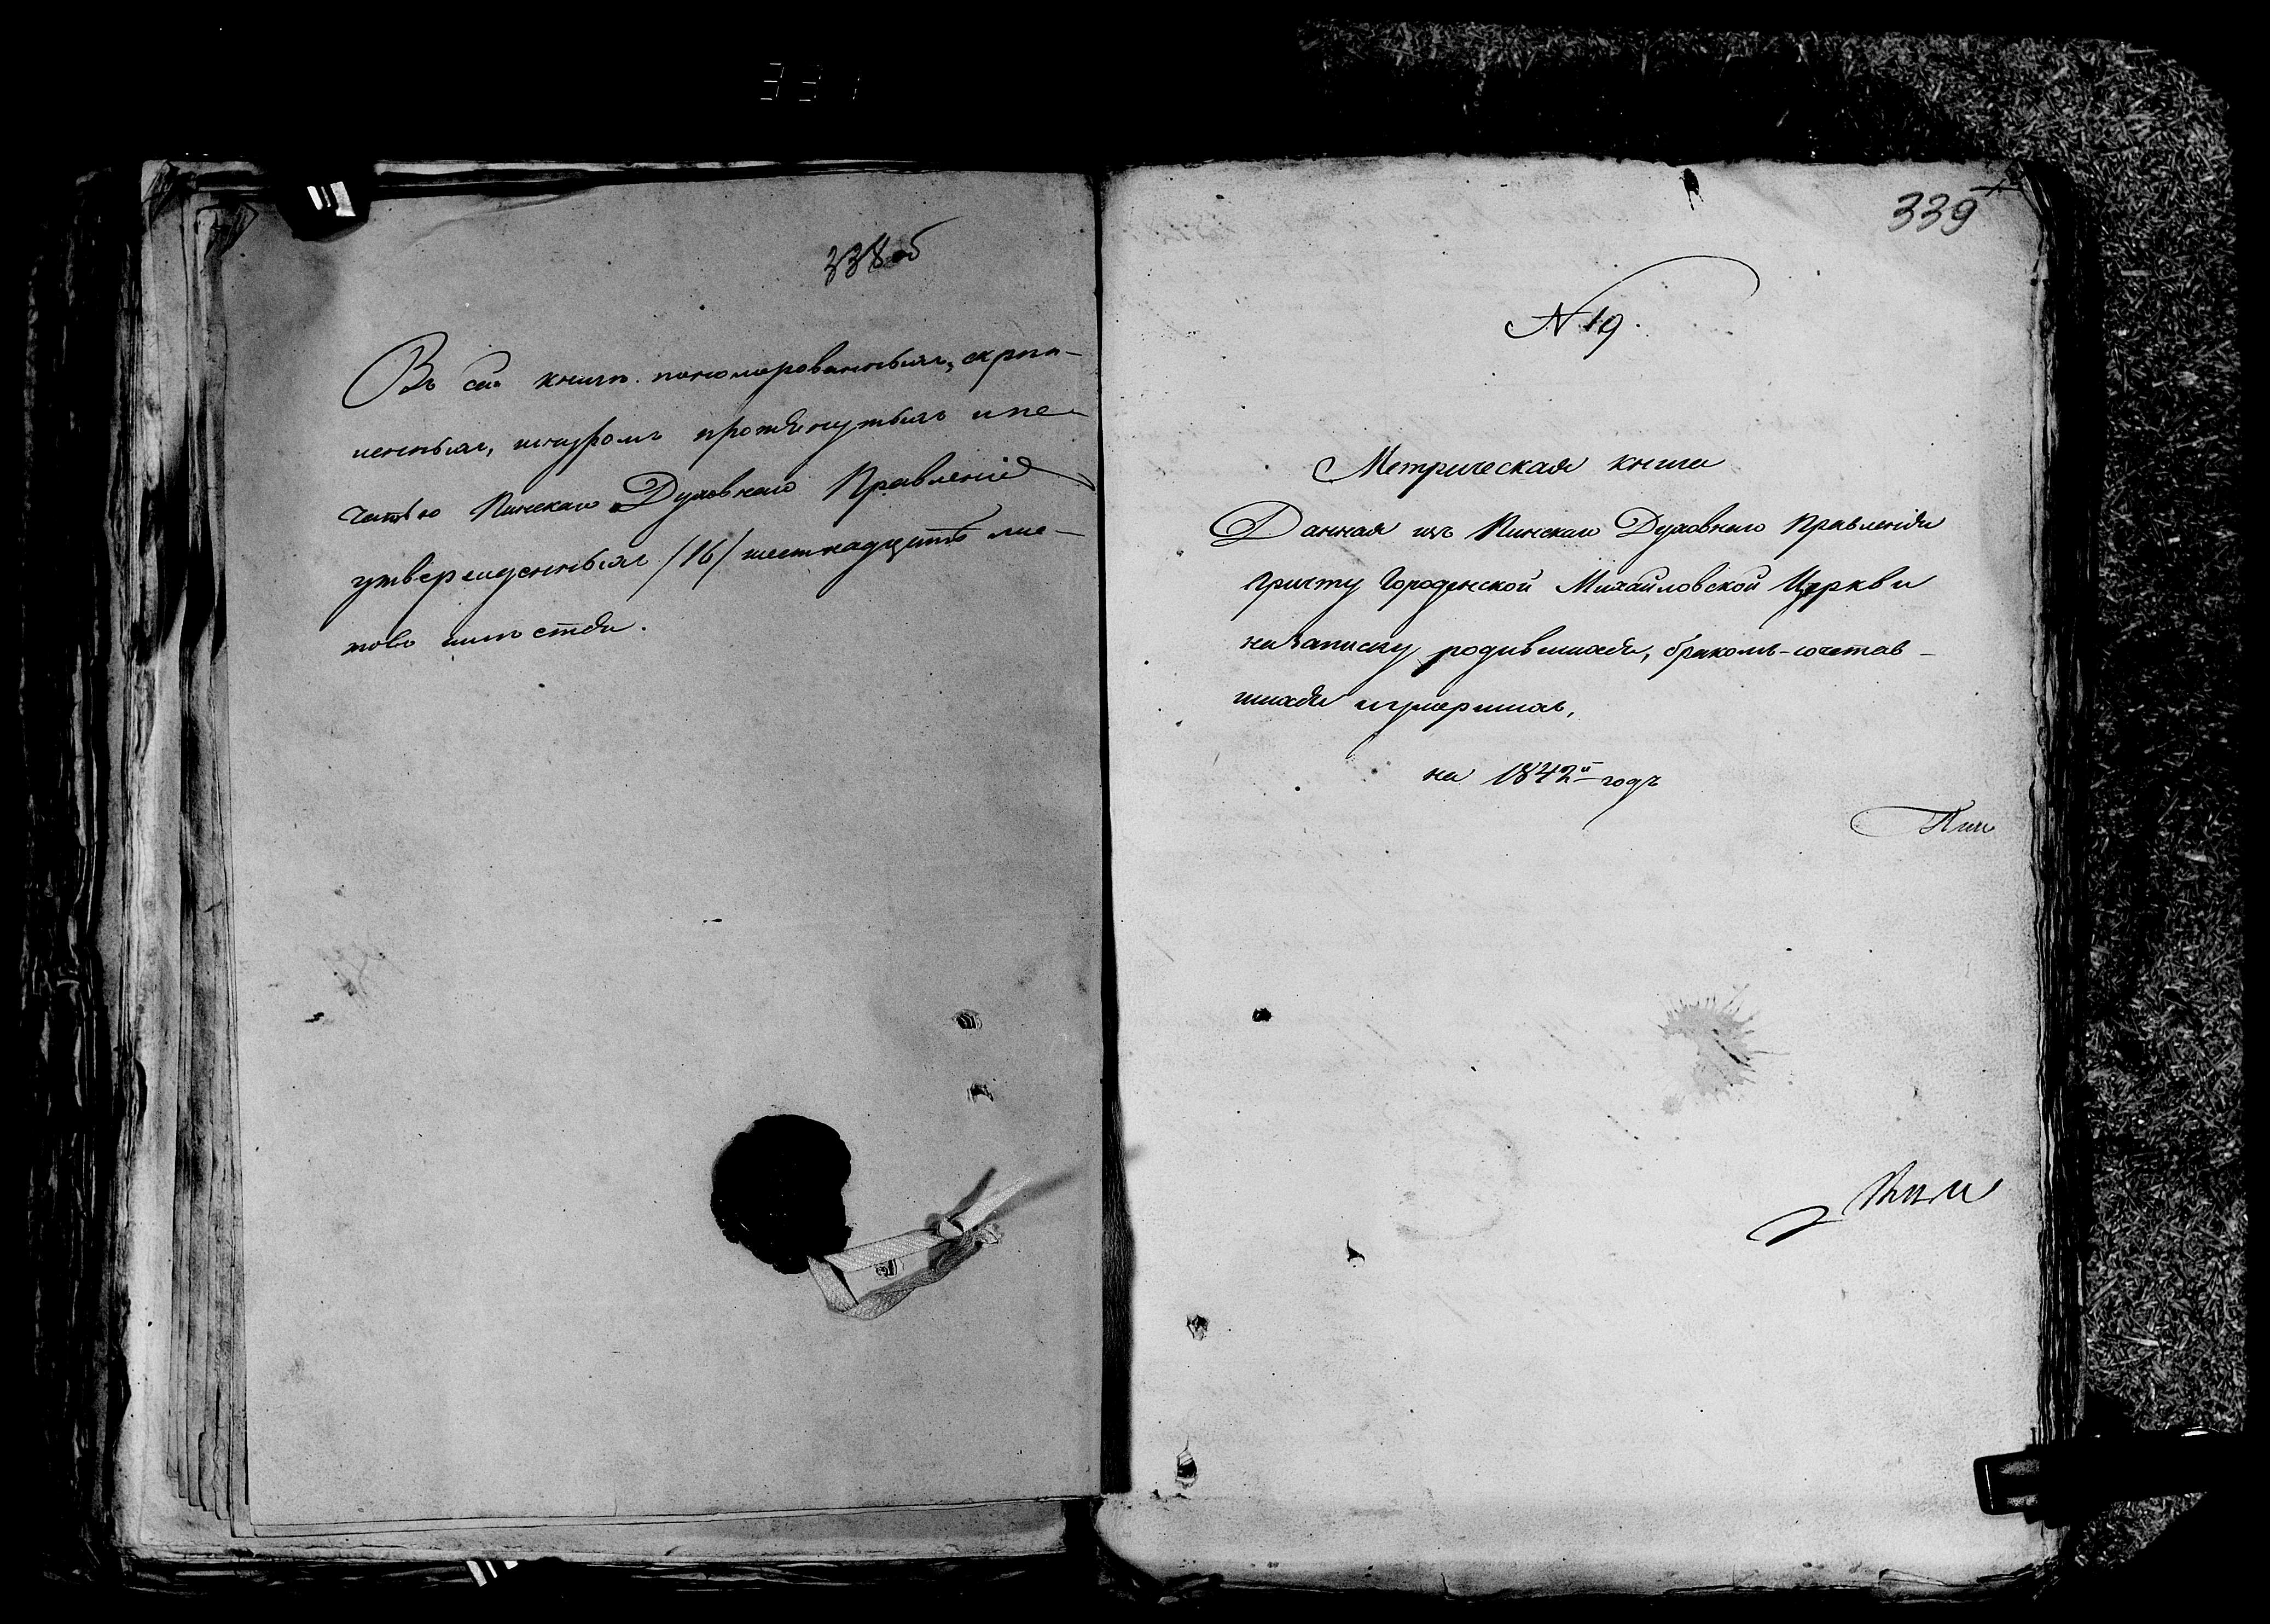 331
338об
Въ сей книгѣ пономерованныхъ, скрѣп-
ленныхъ, шнуромъ протянутыхъ и пе-
чатью Пинскаго Духовнаго Правленія
утвержденныхъ /16/ шестнадцать лис-
товъ шнуръ
339
N 19.
Метрическая книга
Данная изъ Пинскаго Духовнаго Правленія
причту Городенской Михайловской Церкви
на записку родившихся, бракомъ-сочетав-
шихся и умершихъ,
на 1842й годъ
Пин